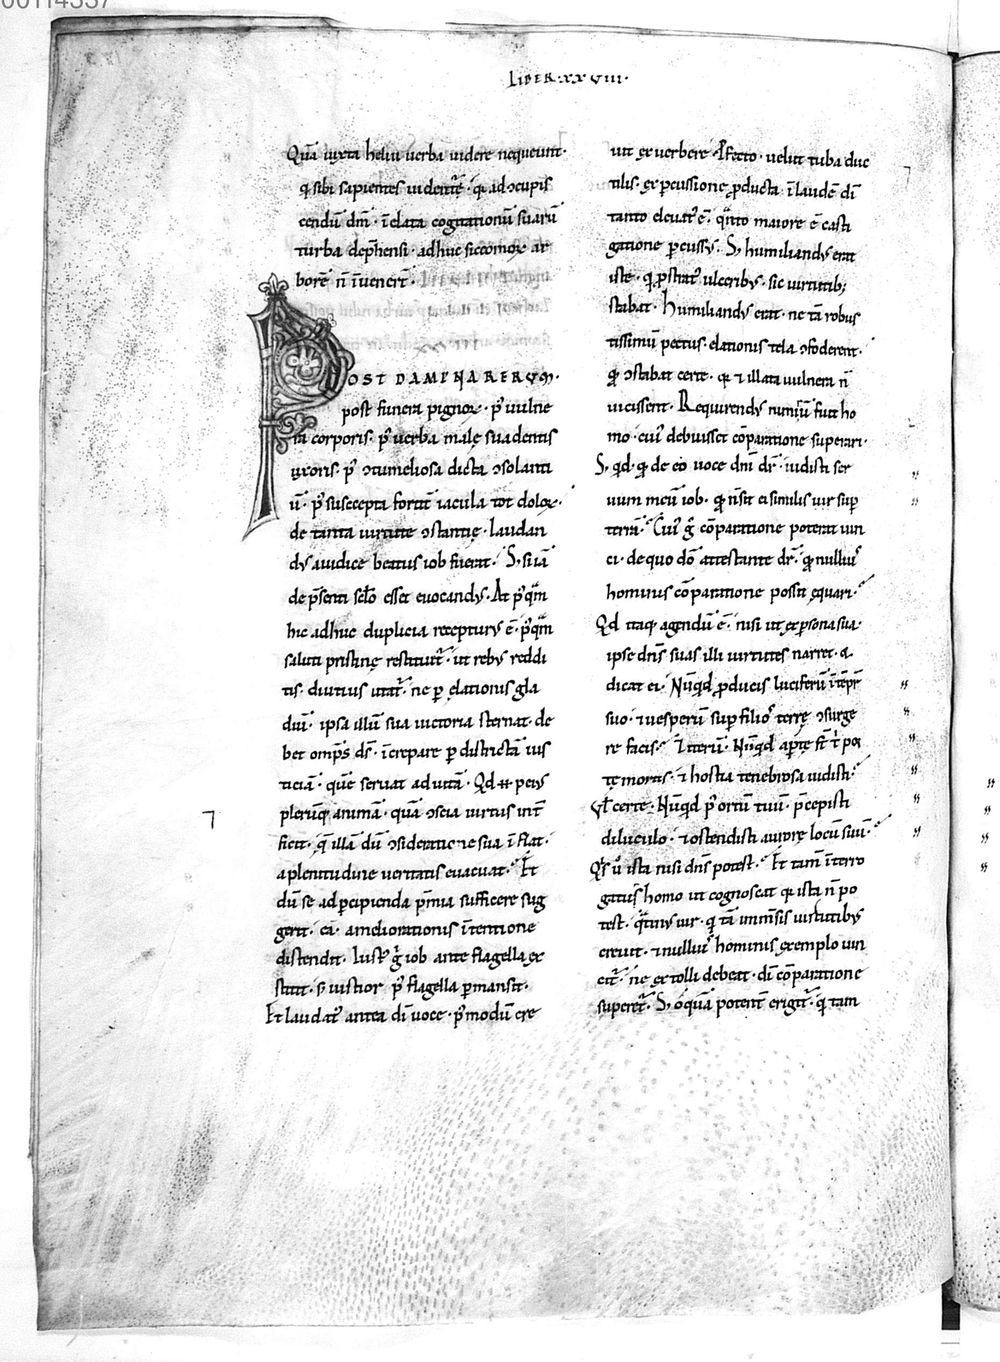 LIBER XXVIII.
Quā iuxta heliu uerba uidere nequeunt.
q̄ sibi sapientes uidentē. q̄a ad ↄcupis
cendū dm̄. in elata cogitationū suarū
turba dep̄hensi. adhuc siccomorꝝ ar
borē n̄ īuenerꝉ.
POST DAMPNA RERVM.
post funera pignorꝝ. p᷒ uulne
ra corporis. p᷒ uerba male suadentis
uxoris. p᷒ ↄtumeliosa dicta ↄsolanti
ū. p᷒ suscepta fortit̄ iacula tot dolorꝝ.
de tanta uirtute ↄstantię. laudan
dꝰ a iudice beatus iob fuerat. S; si iā
de p̄senti sclo esset euocandꝰ. At p᷒qͣm
hic adhuc duplicia recepturꝰ ē. p᷒qͣm
saluti pristinę restituit̄. ut rebꝰ reddi
tis. diutius utat̄. ne p elationis gla
diū. ipsa illū sua uictoria sternat. de
bet omp̄s ds̄. īcrepare p districtā ius
ticiā. quē seruat ad uitā. Qd̄ .n. peiꝰ
plerūq; animā. quā ↄscia uirtus int̄
ficit. q̄ illā dū ↄsideratione sua īflat.
a plenitudine ueritatis euacuat. Et
dū se ad ꝑcipienda p̄mia sufficere sug
gerit. eā. ameliorationis ītentione
distendit. Iust᷒ g̊ iob ante flagella ex
stitit. s; iustior p᷒ flagella ꝑmansit.
Et laudat᷒ antea dī uoce. p᷒modū cre
uit ex uerbere. Pfecto. uelut tuba duc
tilis. ex ꝑcussione ꝓducta. ī laudē dī
tanto eleuat᷒ ē. qͣnto maiore ē casti
gatione ꝑcussꝰ. S; humiliandꝰ erat
iste. q̄ ꝓstrat᷒ ulceribꝰ. sic uirtutib;
stabat. Humiliandꝰ erat. ne tā robus
tissimū pectus. elationis tela ↄfoderent.
q̄ ↄstabat certe. qꝛ ⁊ illata uulnera n̄
uicissent. Requirendꝰ nimiū fuit ho
mo. cui᷒ debuisset cōparatione superari.
S; qd̄. q̄ de eo uoce dn̄i dr̄. uidisti ser
uum meū iob. q̄ n̄ sit ei similis uir sup
terrā. Cui᷒ g̊ cōparatione poterat uin
ci. de quo dō attestante dr̄. q̄ nulli᷒
hominis cōparatione possit equari.
Qd̄ itaq; agendū ē. nisi ut ex ꝑsona sua.
ipse dn̄s suas illi uirtutes narret. ⁊
dicat ei. Nūqd̄ ꝓducis luciferū ī tēpr̄
suo. ⁊ uesperū sup filios terrę ↄsurge
re facis. Iterū. Nūqd̄ aꝑtę s̄t t̄ por
tę mortis. ⁊ hostia tenebrosa uidisti.
Vl̄ certe. Nūqd̄ p᷒ ortū tuū. p̄cepisti
diluculo. ⁊ ostendisti aurorę locū suū.
Qs̄ ū ista nisi dn̄s potest. Et tam̄ īterro
gatus homo ut cognoscat qꝛ ista n̄ po
test. qͣtin᷒ uir. q̄ tā immēsis uirtutibꝰ
creuit. ⁊ nulli᷒ hominis exemplo uin
cit̄. ne extolli debeat. dī cōparatione
superet̄. S; o quā potent̄ erigit̄. q̄ tam